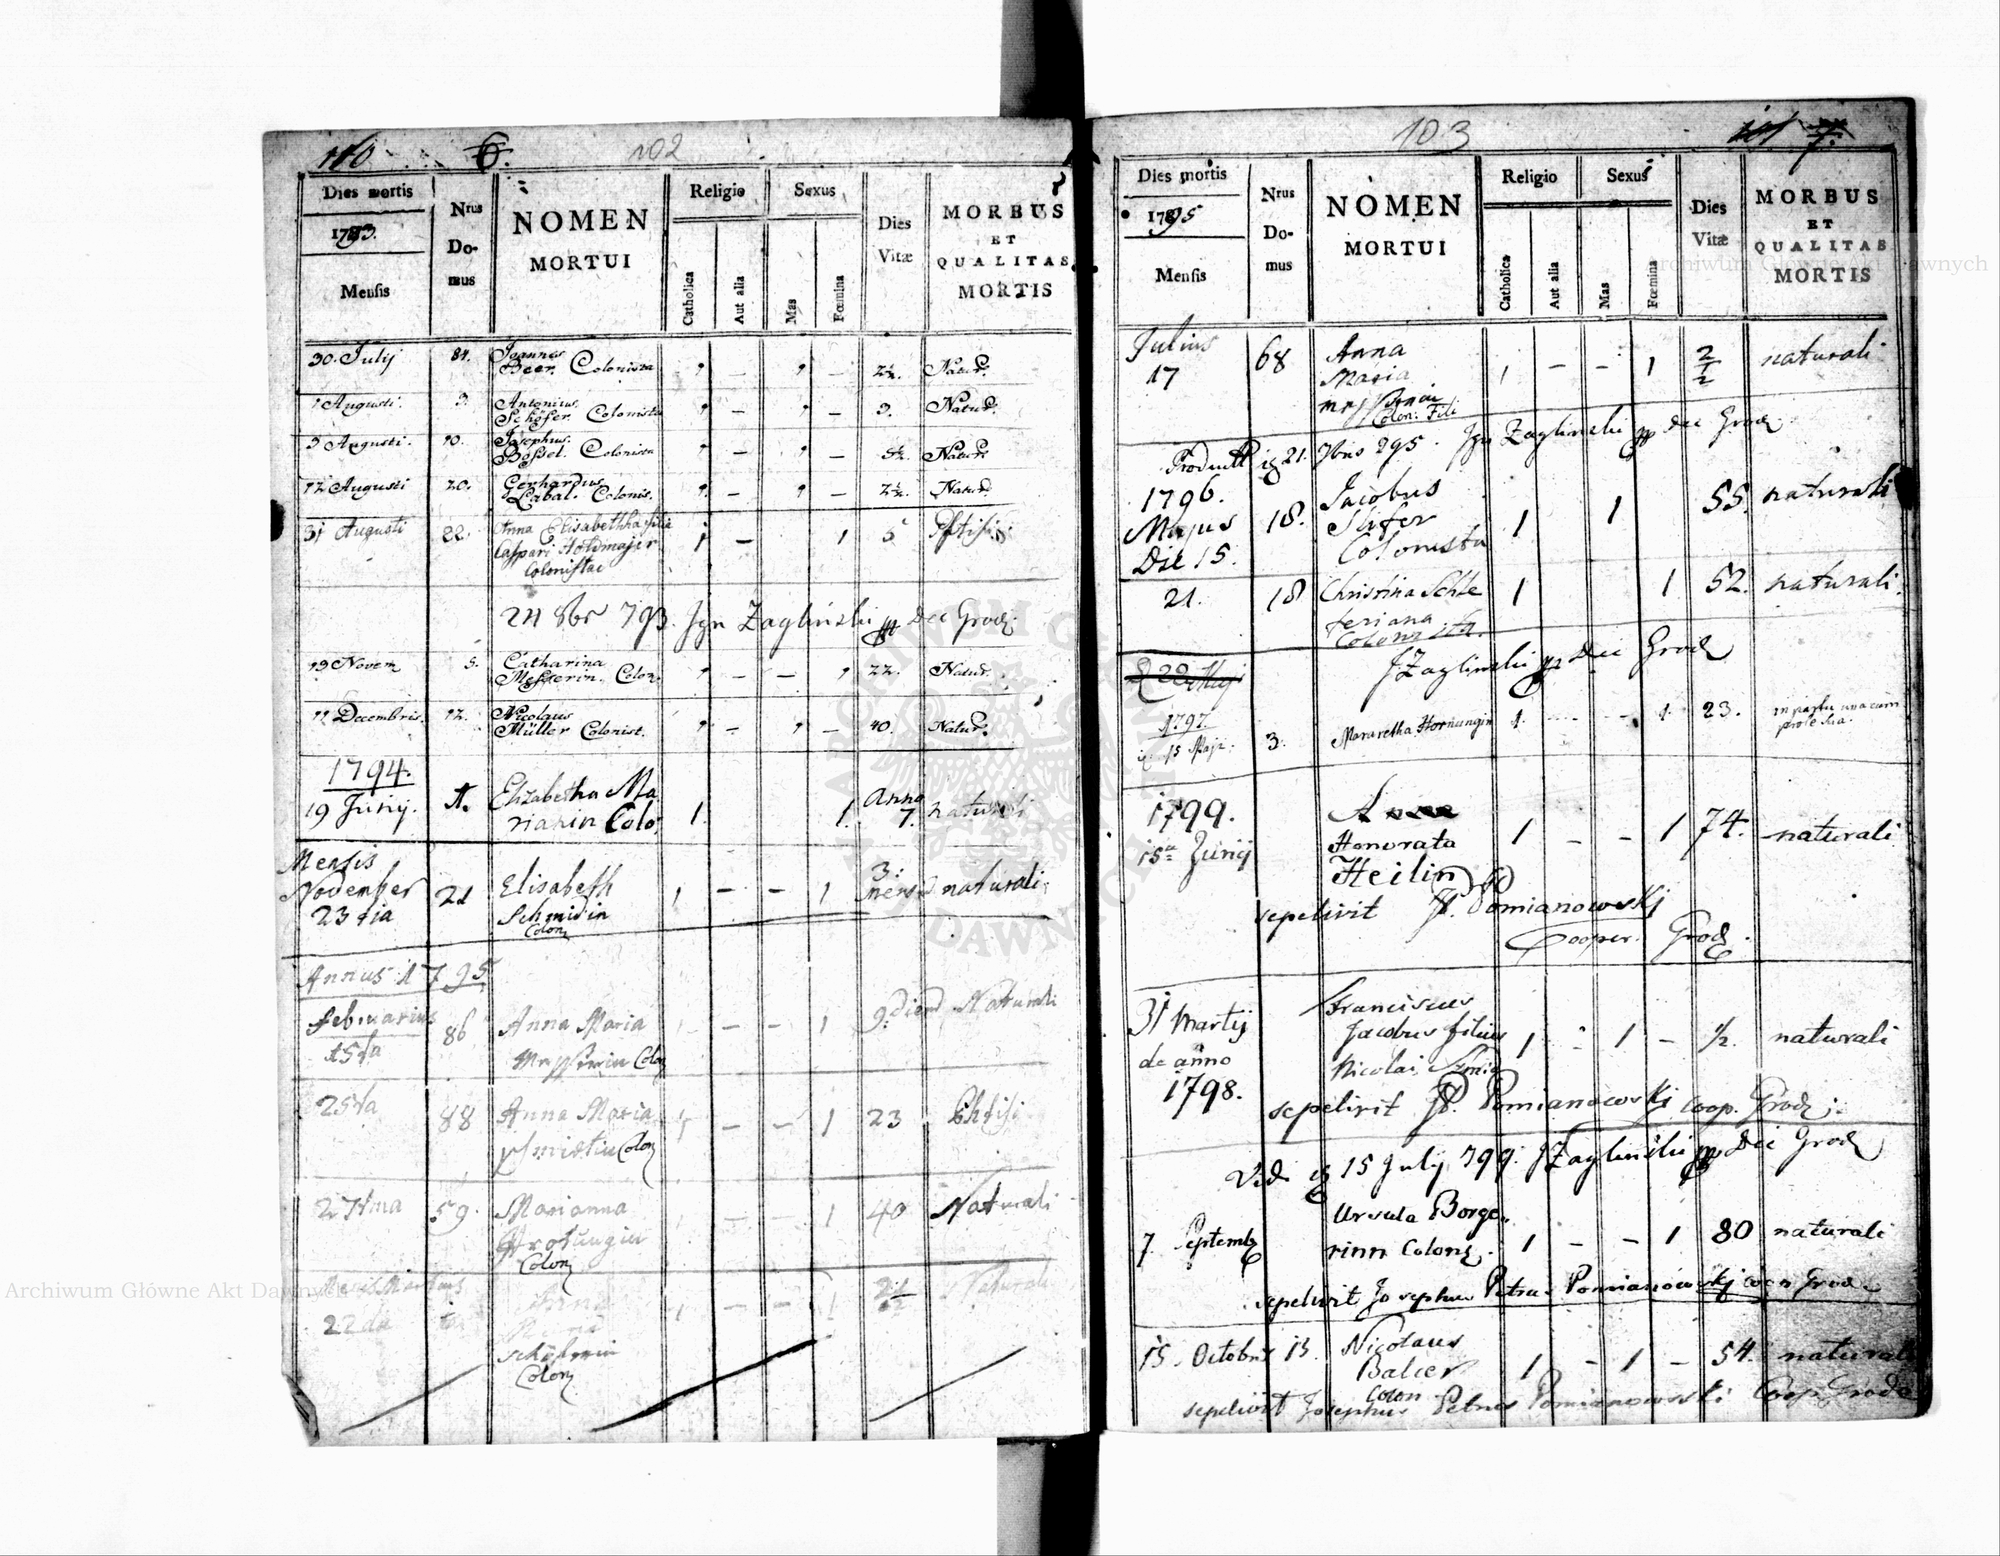 110 6. 102
Dies mortis
1793.
Mensis
Nrus
Do-
mus
NOMEN
MORTUI
Religio
Catholica
Aut alia
Sexus
Mas
Fœmina
Dies
Vitæ
MORBUS
ET
QUALITAS
MORTIS
30. July 84. Joannes
Beer. Colonista 1 – 1 – 2½. Natur.
1 Augusti. 3. Antonius
Schöfer. Colonista 1 – 1 – 3. Natur.
3 Augusti. 10. Josephus
Bossel. Colonista 1 – 1 – Natur.
12 Augusti 20. Gerhardus
Labal. Colonis. 1 – 1 – 2½. Natur.
31 Augusti 22. Anna Elisabethha filia
Caspari Holdmajer
Colonistae 1 – 1 5 Phtisis
24 8br 793. Ign Zagliński pp Dec Grodz
19 Novem 5. Catharina
Messerin. Colon. 1 – – 1 22. Natur.
11 Decembris. 12. Nicolaus
Müller Colonist. 1 – 1 – 40. Natur.
1794.
19 Junij. Elizabetha Ma
rianin Colo 1. 1. Anno
7. naturali
Mensis
November
23tia 21 Elisabeth
Schmidin
Colon 1 – – 1 3.
mens naturali
Annus 1795
februarius
15ta 86 Anna Maria
Colon 1 – – 1 9. dierum Naturali
25ta 88 Anna Maria
Colon 1 – – 1 23 Phtisi
27tma 59. Marianna
Colon 1 – – 1 40 Naturali
Mensis Martius
22da Anna
Maria
Schäferin
Colon 1 – – 1 Naturali
103 101 7.
Dies mortis
1795
Mensis
Nrus
Do-
mus
NOMEN
MORTUI
Religio
Catholica
Aut alia
Sexus
Mas
Fœmina
Dies
Vitæ
MORBUS
ET
QUALITAS
MORTIS
Julius
17 68 Anna
Maria
Colon: Fili 1 – – 1 2½ naturali
21. 7bris 795. Ign Zagliński pp Dec Grodz
1796.
Majus
Die 15. 18. Jacobus
Slifer
Colonista 1 1 55. naturali
21. 18 Christina Schle
feriana
Colonista. 1 1 52. naturali
22 Maj
JZagliński pp Dec Grodz
1797.
15 Maji. 3. Mararetha Hornungin 1. – – 1. 23. in partu una cum
prole sua.
1799.
15ta Junij Anna
Honorata
Heilin 1 – – 1 74. naturali
sepelivit JP. Pomianowskj
Cooper. Grodz.
31 Martij
de anno
1798. Franciscus
Jacobus filius
Nicolai Szmid 1 – 1 – ½. naturali
sepelivit JP. Pomianowskj coop. Grodz.
Vidi 15 July 799. JZagliński pp Dec Grodz
7. Septemb Ursula Borge
rinn Colon. 1 – – 1 80 naturali
sepelivit Josephus Petrus Pomianowskj coop Grod.
15. Octobris 13. Nicolaus
Balier
Colon 1 – 1 – 54. naturali
sepelivit Josephus Petrus Pomianowski Coop. Grodz
ARCHIWUM GŁÓWNE AKT DAWNYCH
Archiwum Główne Akt Dawnych
Archiwum Główne Akt Dawnych